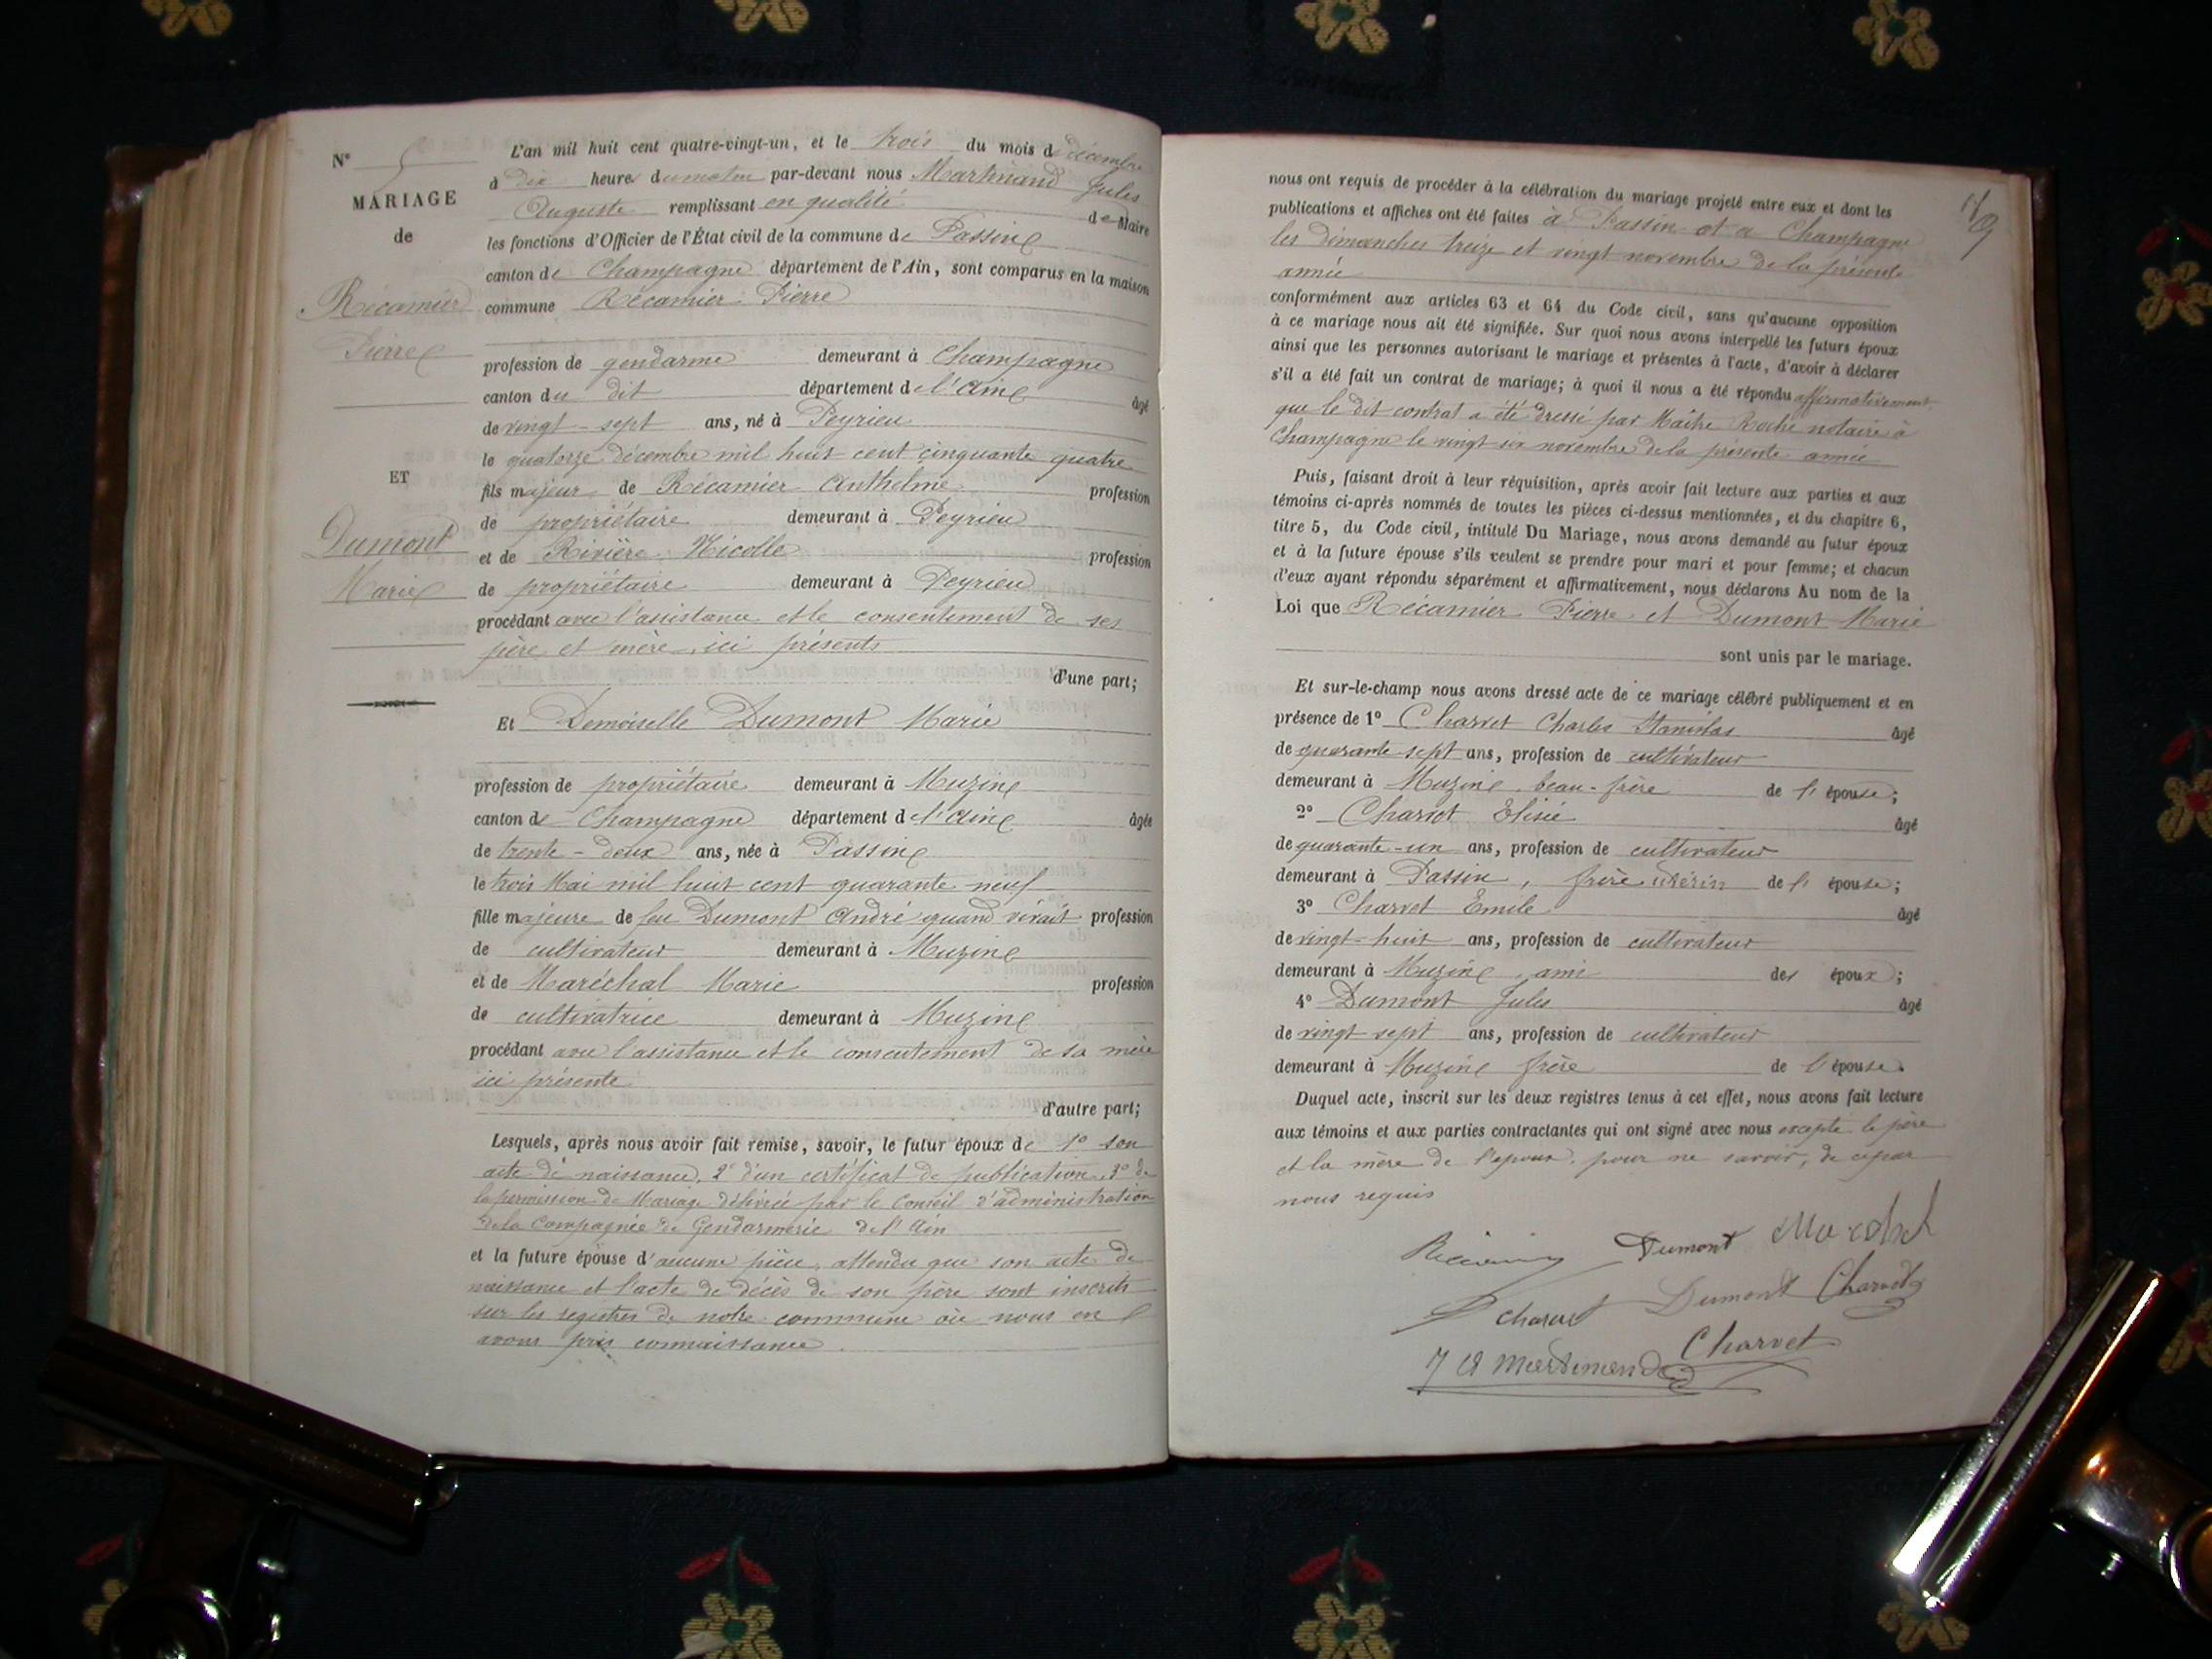 N° 5
MARIAGE
de
Récamier
Pierre
ET
Dumont
Marie
L'an mil huit cent quatre-vingt-un, et le trois du mois de décembre
à dix heures du matin par-devant nous Martinand Jules
Auguste remplissant en qualité de Maire
les fonctions d'Officier de l'État civil de la commune de Passin
canton de Champagne département de l'Ain, sont comparus en la maison
commune Récamier Pierre
profession de gendarme demeurant à Champagne
canton du dit département de l'Ain âgé
de vingt-sept ans, né à Peyrieu
le quatorze décembre mil huit cent cinquante quatre
fils majeur de Récamier Anthelme profession
de propriétaire demeurant à Peyrieu
et de Rivière Nicolle profession
de propriétaire demeurant à Peyrieu
procédant avec l'assistance et le consentement de ses
père et mère, ici présents
d'une part;
Et Demoiselle Dumont Marie
profession de propriétaire demeurant à Muzin
canton de Champagne département de l'Ain âgée
de trente-deux ans, née à Passin
le trois Mai mil huit cent quarante neuf
fille majeure de feu Dumont André quand vivait profession
de cultivateur demeurant à Muzin
et de Maréchal Marie profession
de cultivatrice demeurant à Muzin
procédant avec l'assistance et le consentement de sa mère
ici présente
d'autre part;
Lesquels, après nous avoir fait remise, savoir, le futur époux de 1° son
acte de naissance, 2° d'un certificat de publication, 3° de
la permission de Mariage délivrée par le Conseil d'administration
de la Compagnie de Gendarmerie de l'Ain
et la future épouse d'aucune pièce, attendu que son acte de
naissance et l'acte de décès de son père sont inscrits
sur les registres de notre commune où nous en
avons pris connaissance.
nous ont requis de procéder à la célébration du mariage projeté entre eux et dont les
publications et affiches ont été faites à Passin et à Champagne
les dimanches treize et vingt novembre de la présente
année
conformément aux articles 63 et 64 du Code civil, sans qu'aucune opposition
à ce mariage nous ait été signifiée. Sur quoi nous avons interpellé les futurs époux
ainsi que les personnes autorisant le mariage et présentes à l'acte, d'avoir à déclarer
s'il a été fait un contrat de mariage; à quoi il nous a été répondu affirmativement
que le dit contrat a été dressé par Maître Roche notaire à
Champagne le vingt six novembre de la présente année
Puis, faisant droit à leur réquisition, après avoir fait lecture aux parties et aux
témoins ci-après nommés de toutes les pièces ci-dessus mentionnées, et du chapitre 6,
titre 5, du Code civil, intitulé Du Mariage, nous avons demandé au futur époux
et à la future épouse s'ils veulent se prendre pour mari et pour femme; et chacun
d'eux ayant répondu séparément et affirmativement, nous déclarons Au nom de la
Loi que Récamier Pierre et Dumont Marie
sont unis par le mariage.
Et sur-le-champ nous avons dressé acte de ce mariage célébré publiquement et en
présence de 1° Charvet Charles Stanislas âgé
de quarante-sept ans, profession de cultivateur
demeurant à Muzin, beau-frère de l'épouse;
2° Charvet Elisée âgé
de quarante-un ans, profession de cultivateur
demeurant à Passin, frère utérin de l'épouse;
3° Charvet Emile âgé
de vingt-huit ans, profession de cultivateur
demeurant à Muzin, ami des époux;
4° Dumont Jules âgé
de vingt sept ans, profession de cultivateur
demeurant à Muzin frère de l'épouse.
Duquel acte, inscrit sur les deux registres tenus à cet effet, nous avons fait lecture
aux témoins et aux parties contractantes qui ont signé avec nous excepté le père
et la mère de l'époux pour ne savoir, de ce par
nous requis
Dumont
Charvet Dumont Charvet
Charvet
J A Martinand